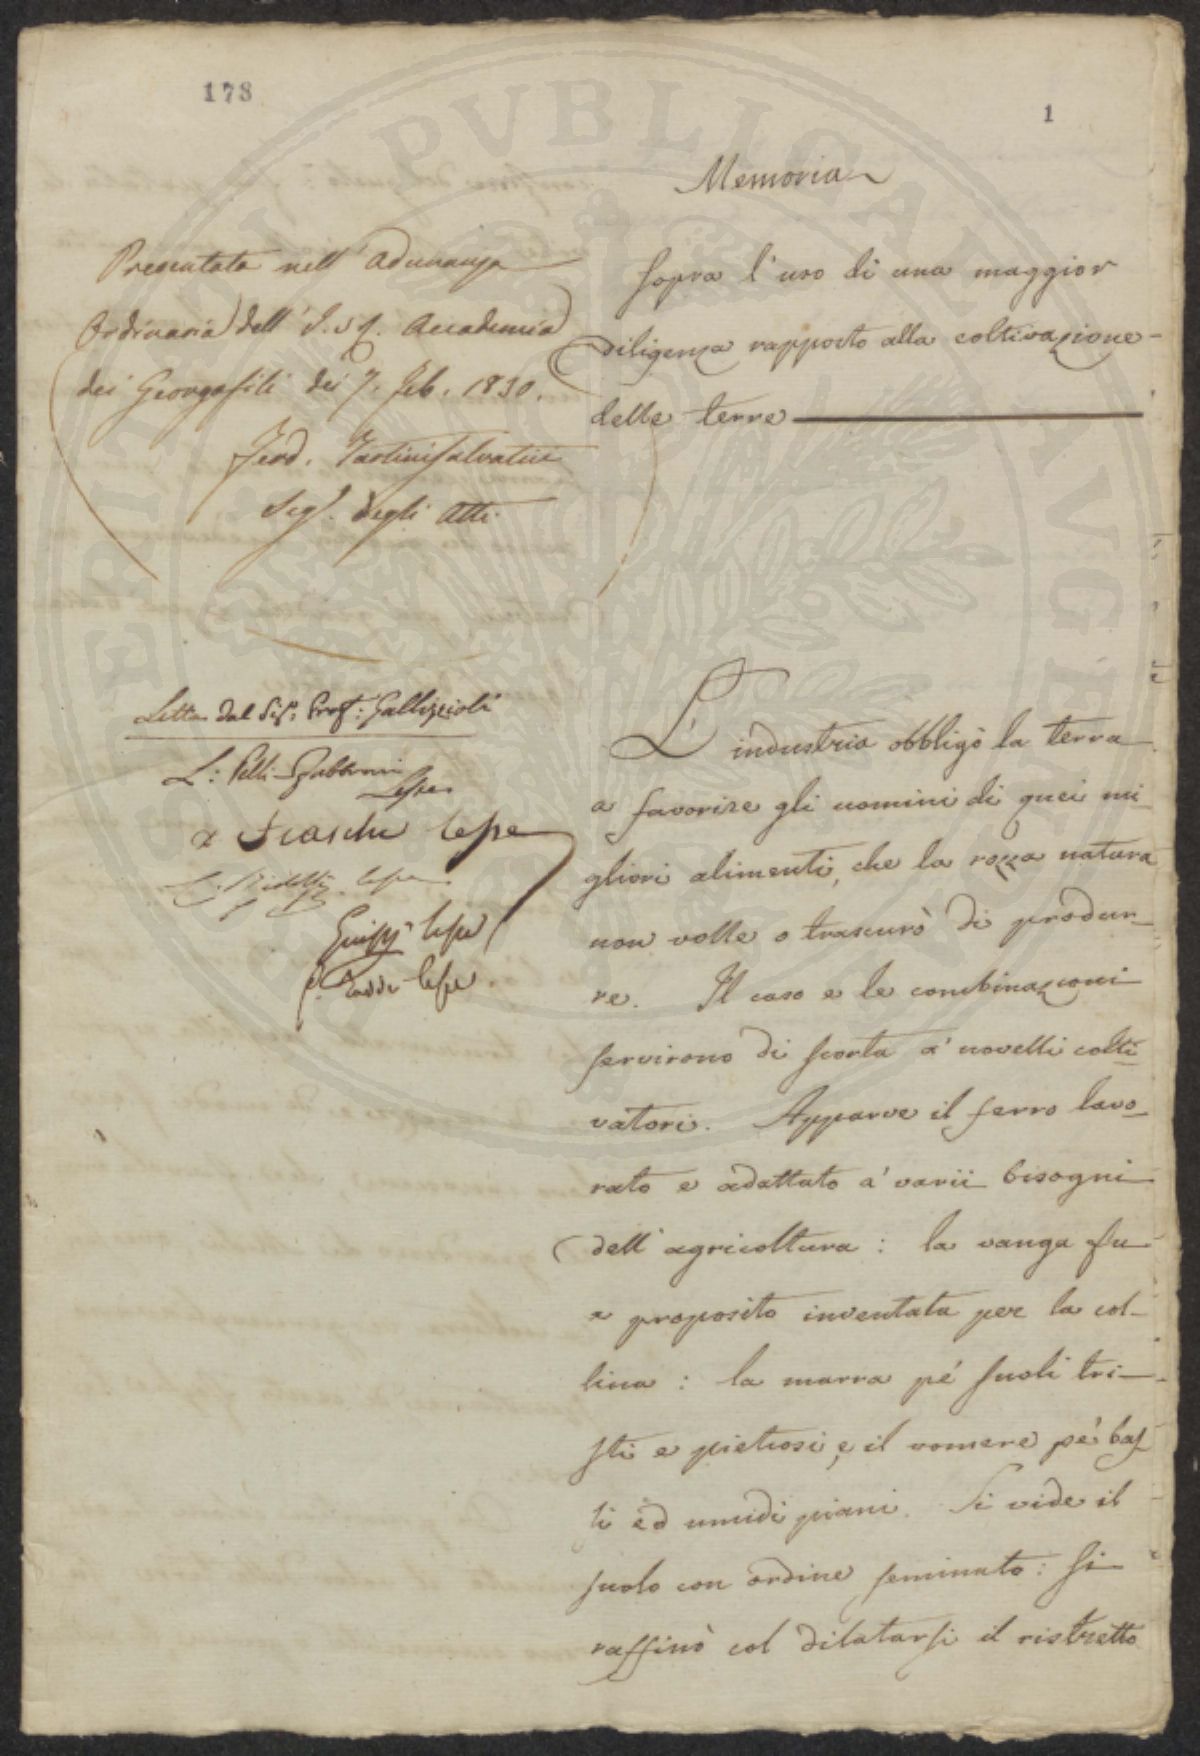 178
1
Memoria
Sopra l'uso di una maggior
diligenza rapporto alla coltivazione
delle terre
Presentata nell'Adunanza
Ordinaria dell'I. e R. Accademia
dei Georgofili dei 7. Feb. 1830.
Ferd. Tartini Salvatici
Seg. degli Atti
Letta dal Sigr. Prof: Gallizioli
L: Pelli-Fabbroni
Lesse
Lesse
lesse
Giusp lesse
Taddi lesse
L'industria obbligò la terra
a favorire gli uomini di quei mi-
gliori alimenti, che la rozza natura
non volle o trascurò di produr-
re. Il caso e le combinazioni
servirono di scorta a' novelli colti
vatori. Apparve il ferro lavo-
rato e adattato a' varii bisogni
dell'agricoltura: la vanga fu
a proposito inventata per la col-
lina: la marra pe' suoli tri-
sti e pietrosi, e il vomere pe' bas
si ed umidi piani. Si vide il
suolo con ordine seminato: si
raffinò col dilatarsi il ristretto
PERUSINA PUBLICA AUGUSTA